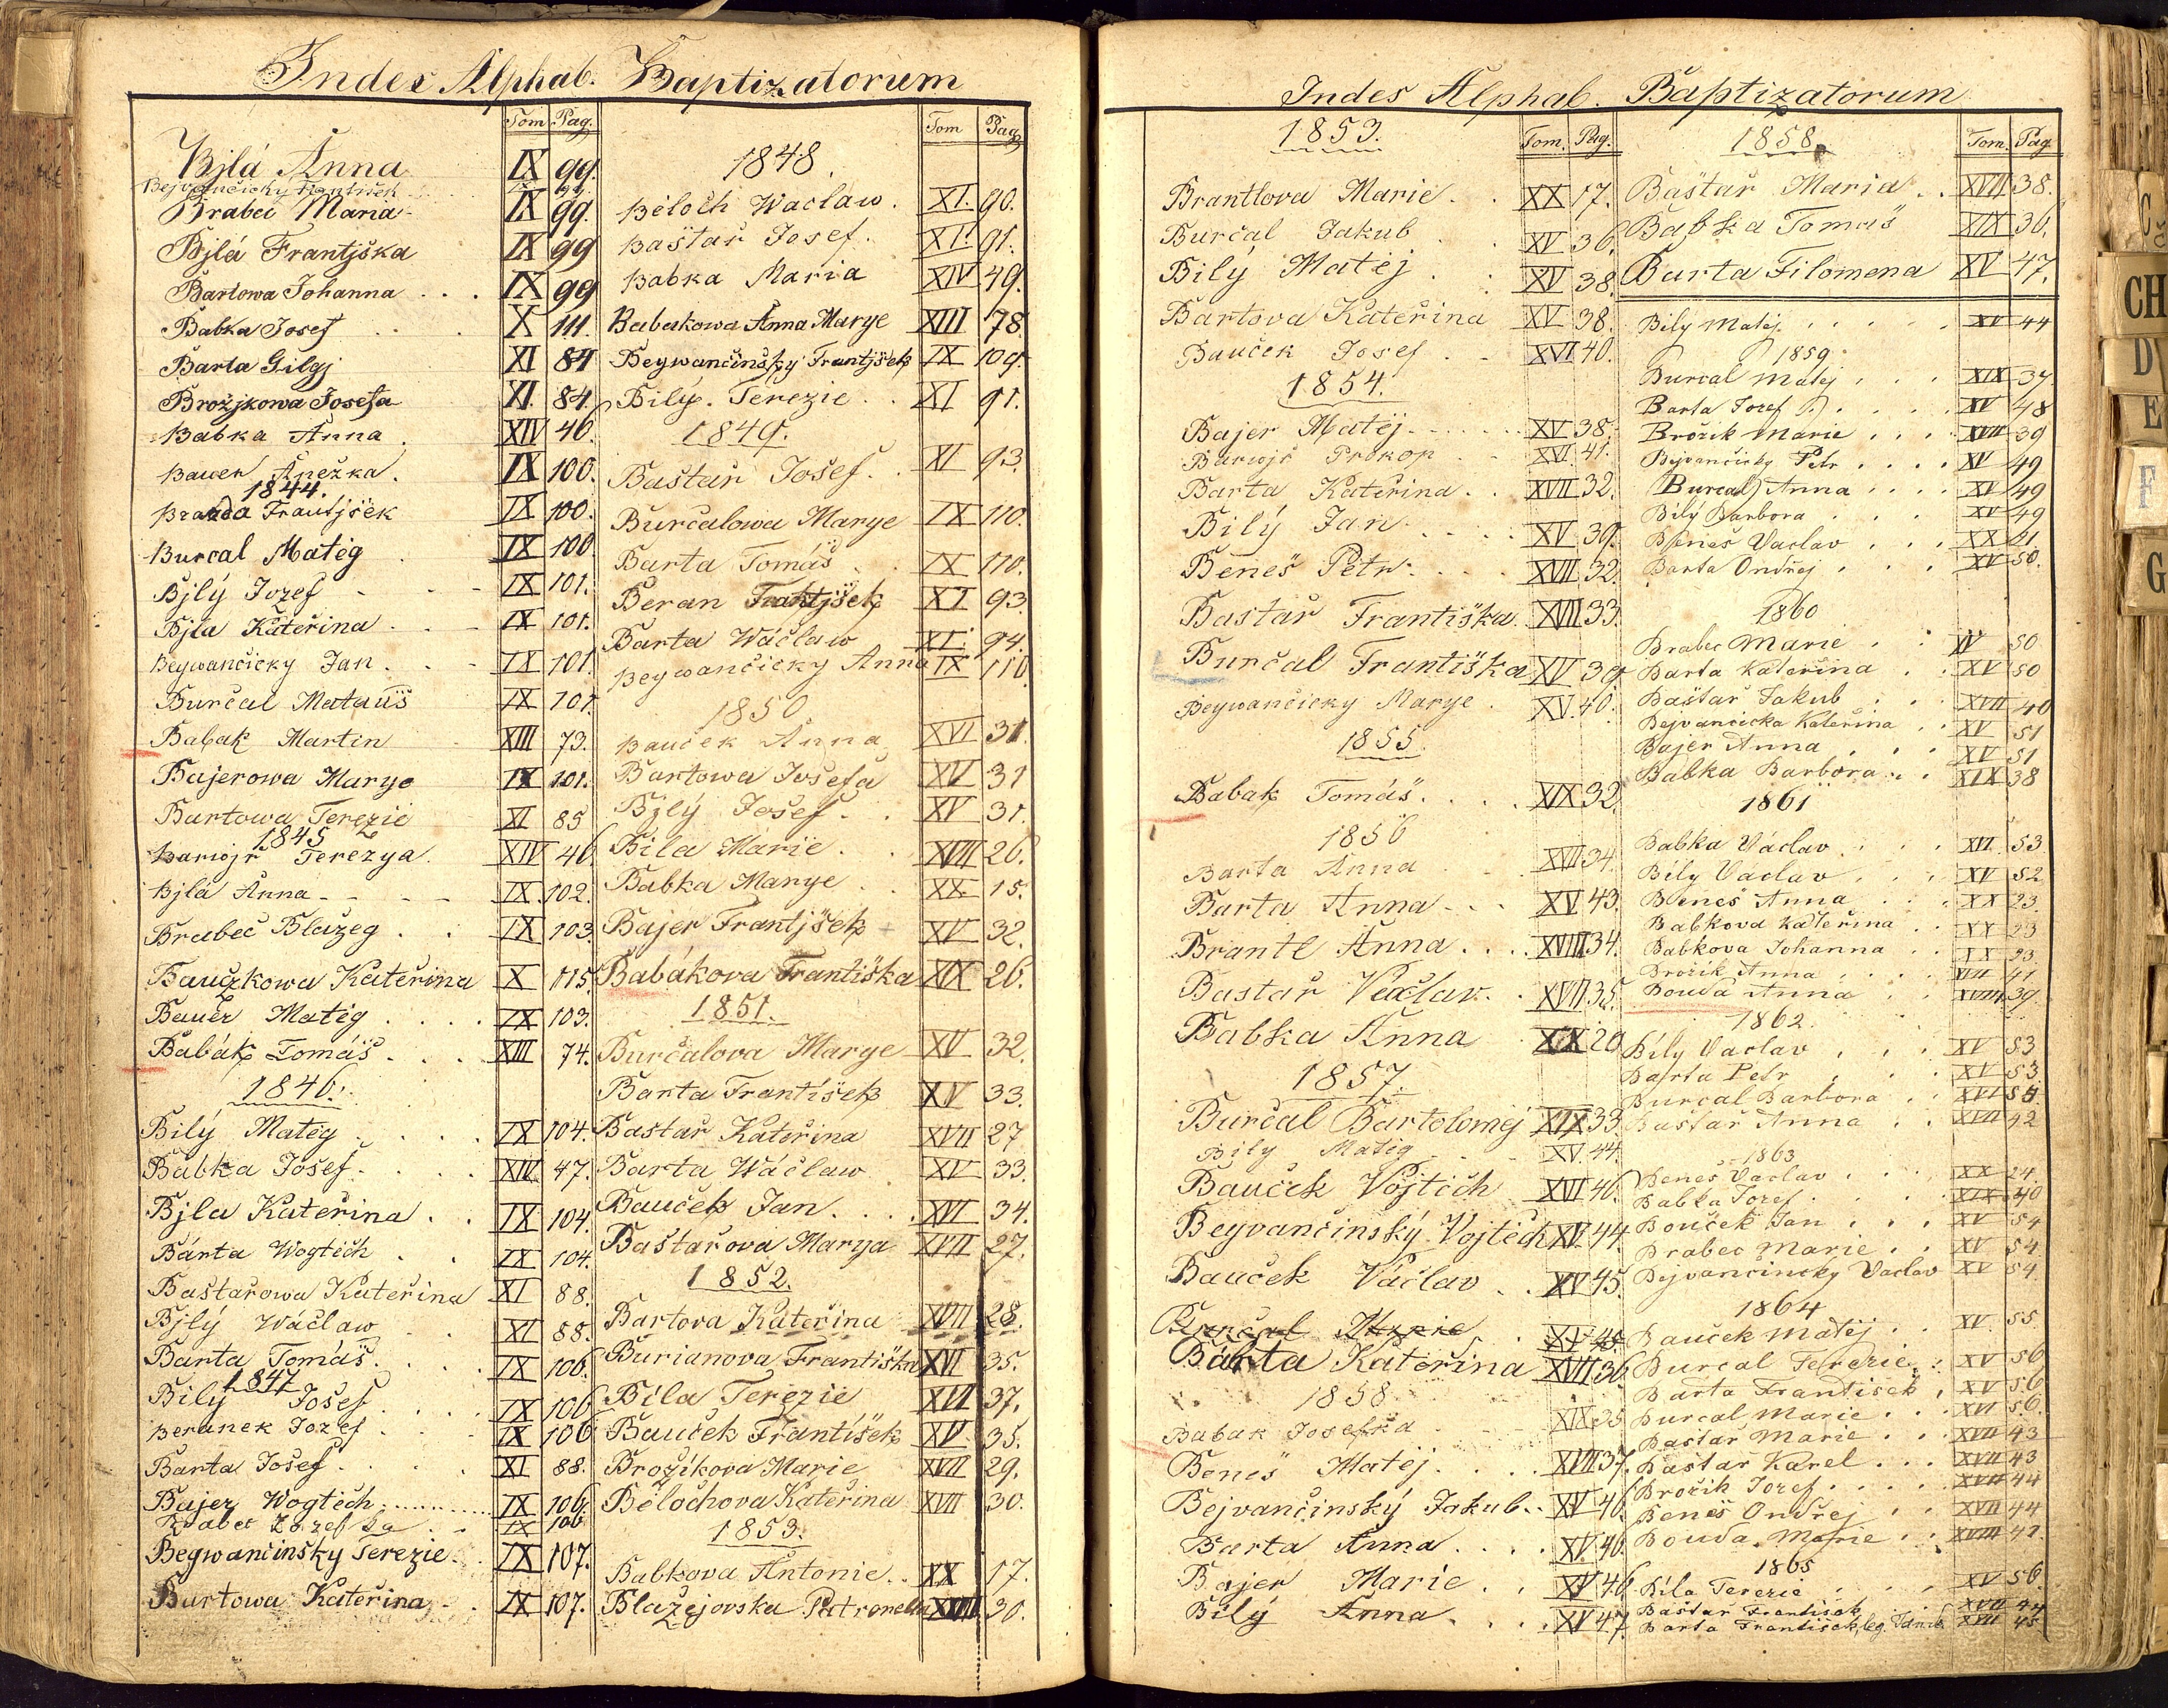 Index Alphab. Baptizatorum
Tom Pag.
Bjlá Anna IX 99
Bejvančický František IX 99
Brabec Maria IX 99
Bjlá Frantjška IX 99
Bartowa Johanna IX 99
Babka Josef X 111.
Barta Gilgj XI 84
Brožjkowa Josefa XI. 84.
Babka Anna XIV 46.
Bauer Anežka. IX 100.
1844.
Frantjšek IX 100.
Burcal Matěg IX 100
Bjlý Jozef IX 101.
Bjla Kateřina IX 101.
Beywančicky Jan. IX 101.
Burčal Matauš IX 101.
Babak Martin XIII 73.
Bajerowa Marye IX 101.
Bartowa Terezie XI 85
1845
Barwjř Terezya. XIV 46
Bjlá Anna IX 102.
Brabec Blažeg IX 103.
Bauczkowa Kateřina X 115.
Bauer Matěg IX 103.
Babák Tomáš XIII 74.
1846.
Bilý Matěg IX 104.
Babka Josef XIV 47.
Bjla Kateřina IX 104.
Bárta Wogtěch IX 104.
Baštařowa Kateřina XI 88.
Bjlý Wáclaw XI 88.
Barta Tomáš. IX 106.
1847
Bilý Josef IX 106
Beranek Jozef IX 106
Barta Josef XI 88.
Bajer Wogtěch IX 106.
Brabec IX 106
Begwančinsky Terezie IX 107.
Bartowa Kateřina IX 107.
Tom Pag
1848.
Běloch Waclaw. XI. 90.
Baštař Josef. XI. 91.
Babka Maria XIV 49.
Babakowa Anna Marye XIII 78.
Beywančinsky Frantjšek IX 109.
Bilý. Terezie XI 91.
1849.
Baštař Josef. XI 93.
Burčalowa Marye IX 110.
Barta Tomáš IX 110.
Beran Frantjšek XI 93.
Barta Wáclaw XI. 94.
Beywančicky Anna IX 110
1850
Bauček Anna XVI 31.
Bartowa Josefa XV 31
Bjlý Josef. XV 31.
Bila Marie. XVII 26.
Babka Marye XX. 15.
Bajer Frantjšek XV 32.
Babákova Františka XIX 26.
1851.
Burčalova Marye XV 32.
Barta František XV 33.
Baštař Kateřina XVII 27
Barta Wáclaw XV 33.
Bauček Jan. XVI 34.
Baštařova Marya XVII 27.
1852.
Bartova Kateřina XVII 28.
Burianova Františka XVI 35.
Bila Terezie XVI 37.
Bauček František XV 35.
Brožíkova Marie XVII 29.
Bělochova Kateřina XVII 30.
1853.
Babkova Antonie XX 17.
Blažejovska Petronella XVII 30.
Index Alphab. Baptizatorum
1853. Tom. Pag.
Brantlova Marie XX 17.
Burčal Jakub XV 36.
Bilý Matěj XV 38.
Bartova Kateřina XV 38.
Bauček Josef XVI 40.
1854.
Bajer Matěj XV 38.
Barwjř Prokop XVI. 41.
Barta Kateřina XVII 32.
Bilý Jan. XV 39.
Beneš Petr. XVII 32.
Bastař Františka XVII 33.
Burčal Františka XV 39
Beywančicky Marye XV. 40.
1855.
Babak Tomáš XIX 32
1856
Barta Anna XVII 34.
Barta Anna XV 43.
Brantl Anna XVIII 34.
Bastař Václav. XVII 35.
Babka Anna XX 20
1857.
Burčal Bartoloměj XIX 33.
Bily Matěg XV. 44.
Bauček Vojtěch XVI 46.
Beyvančinský Vojtěch XV. 44.
Bauček Václav XV 45.
Burčal Marie XV 45
Bárta Kateřina XVII 36.
1858
Babak Josefka XIX 35
Beneš Matěj XVII 37.
Bejvančinský Jakub XV 46.
Barta Anna XV 46.
Bajer Marie XV 46.
Bilý Anna XV 47.
1858. Tom. Pag
Baštař Maria XVII 38.
Babka Tomaš XIX 36.
Barta Filomena XV 47.
Bily Matěj XV 44
1859.
Burcal Matěj XIX 37
Barta Jozef XV 48
Brožik Marie XVII 39
Bejvančicky Petr XV 49
Burcal Anna XV 49
Bílý Barbora XV 49
Beneš Vaclav XX 21
Barta Ondřej XV 50.
1860
Brabec Marie XV 50
Barta Kateřina XV 50
Baštař Jakub XVII 40
Bejvancicka Kateřina XV 51
Bajer Anna XV 51
Babka Barbora XIX 38
1861
Babka Václav XVI 53
Bily Vaclav XV 52
Beneš Anna XX 23.
Babkova Kateřina XX 23
Babkova Johanna XX 23.
Brožik Anna XVII 41
Bouda Anna XVIII 39.
1862.
Bíly Vaclav XV 53
Barta Petr XV 53
Burcal Barbora XVI 54
Baštař Anna XVII 42
1863
Beneš Vaclav XX 24.
Babka Jozef XIX 40
Bouček Jan XV 54
Brabec Marie XV 54
Bejvancincky Vaclav XV 54
1864
Bauček Matěj XV 55.
Burcal Terezie XV 56
Barta Frantisek XV 56
Burcal Marie XVI 56.
Baštař Marie XVII 43
Baštař Karel XVII 43
Brožik Jozef XVII 44
Beneš Ondřej XVII 44
Bouda Marie XVIII 42.
1865
Bila Terezie XV 56.
Baštař Frantisek XVII 44
Barta Frantisek, leg. XVII 45
C
Č
CH
D
E
F
G